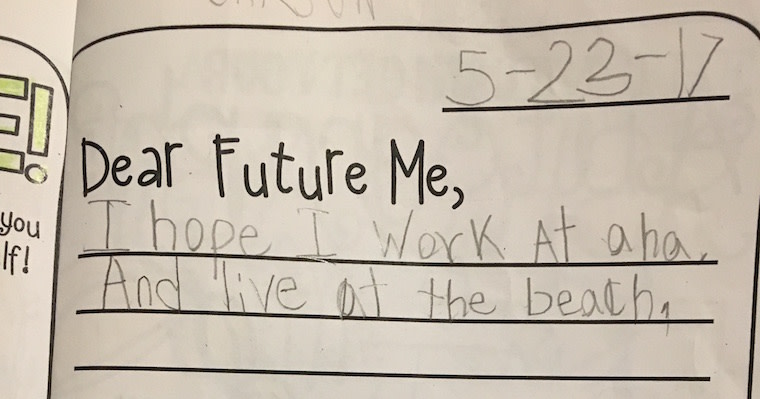 5-23-17
E!
Dear Future Me,
you
I hope I work At aha.
lf!
And live at the beach,